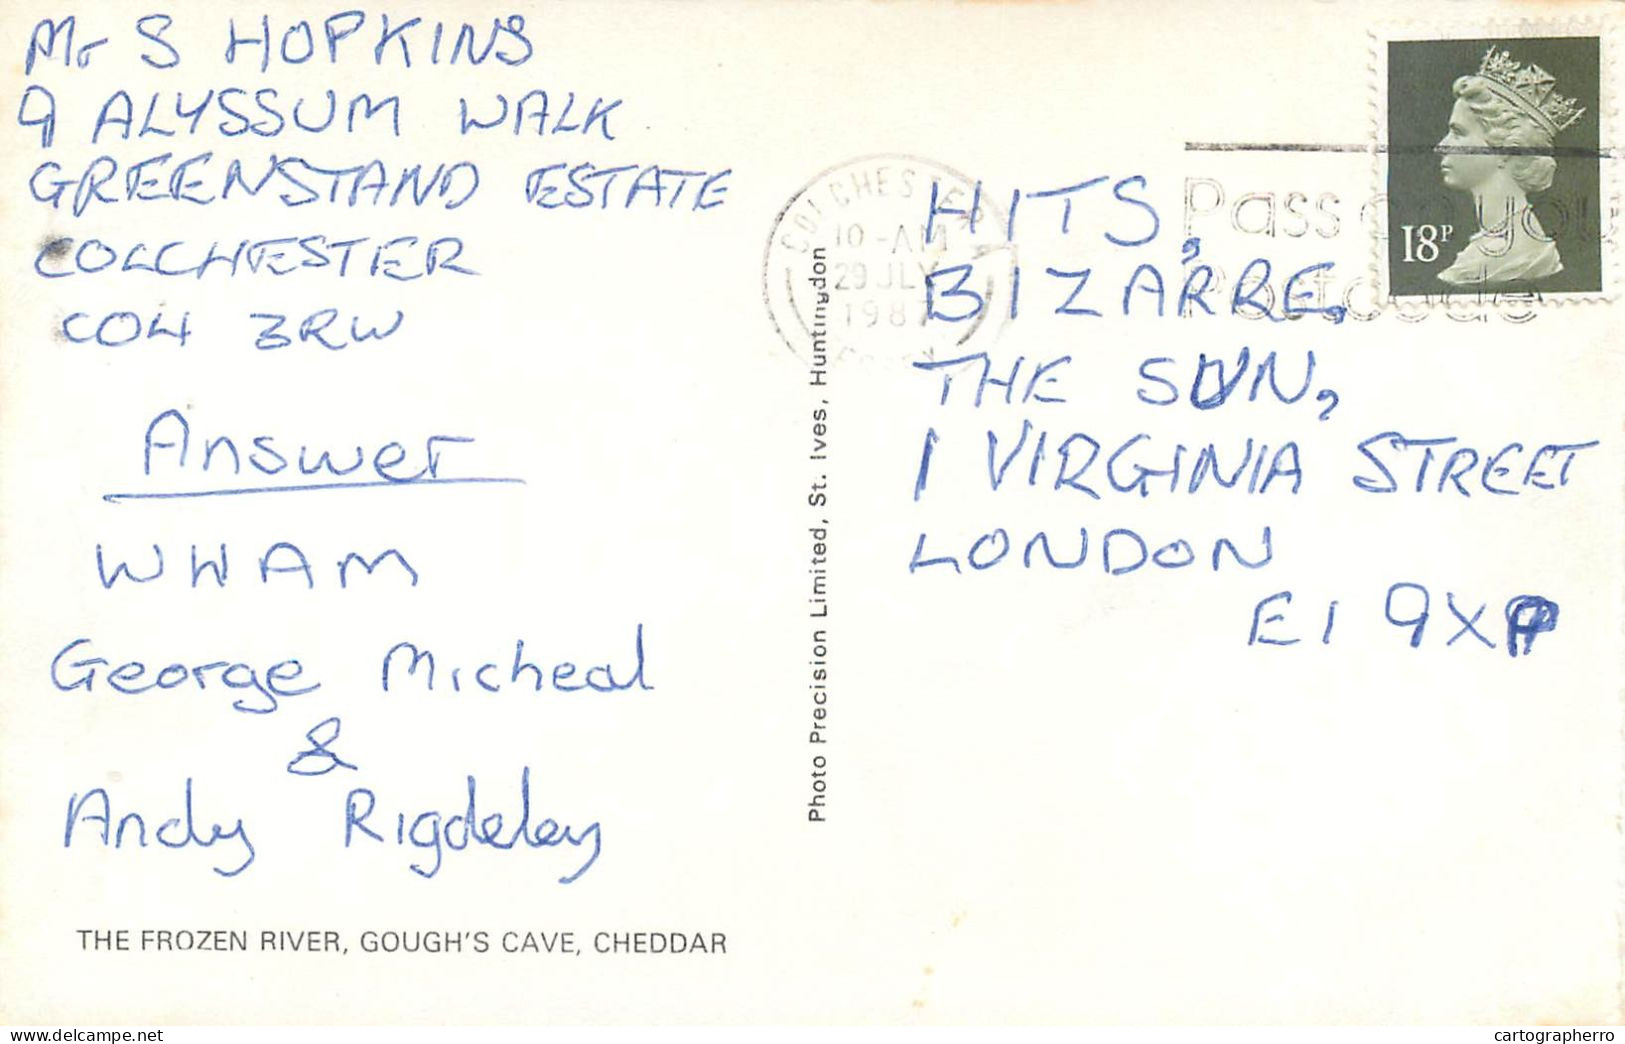 Mr S HOPKINS
9 ALYSSUM WALK
GREENSTAND ESTATE
COLCHESTER
CO4 3RW
Answer
WHAM
George Micheal
&
Andy Rigdeley
THE FROZEN RIVER, GOUGH'S CAVE, CHEDDAR
Photo Precision Limited, St. Ives, Huntingdon
COLCHESTER A
10 -AM
29 JLY
1987
ESSEX
Pass on you
Postcode
18P
HITS,
BIZARRE,
THE SUN,
1 VIRGINIA STREET
LONDON
E1 9XP
delcampe.net
cartographerro